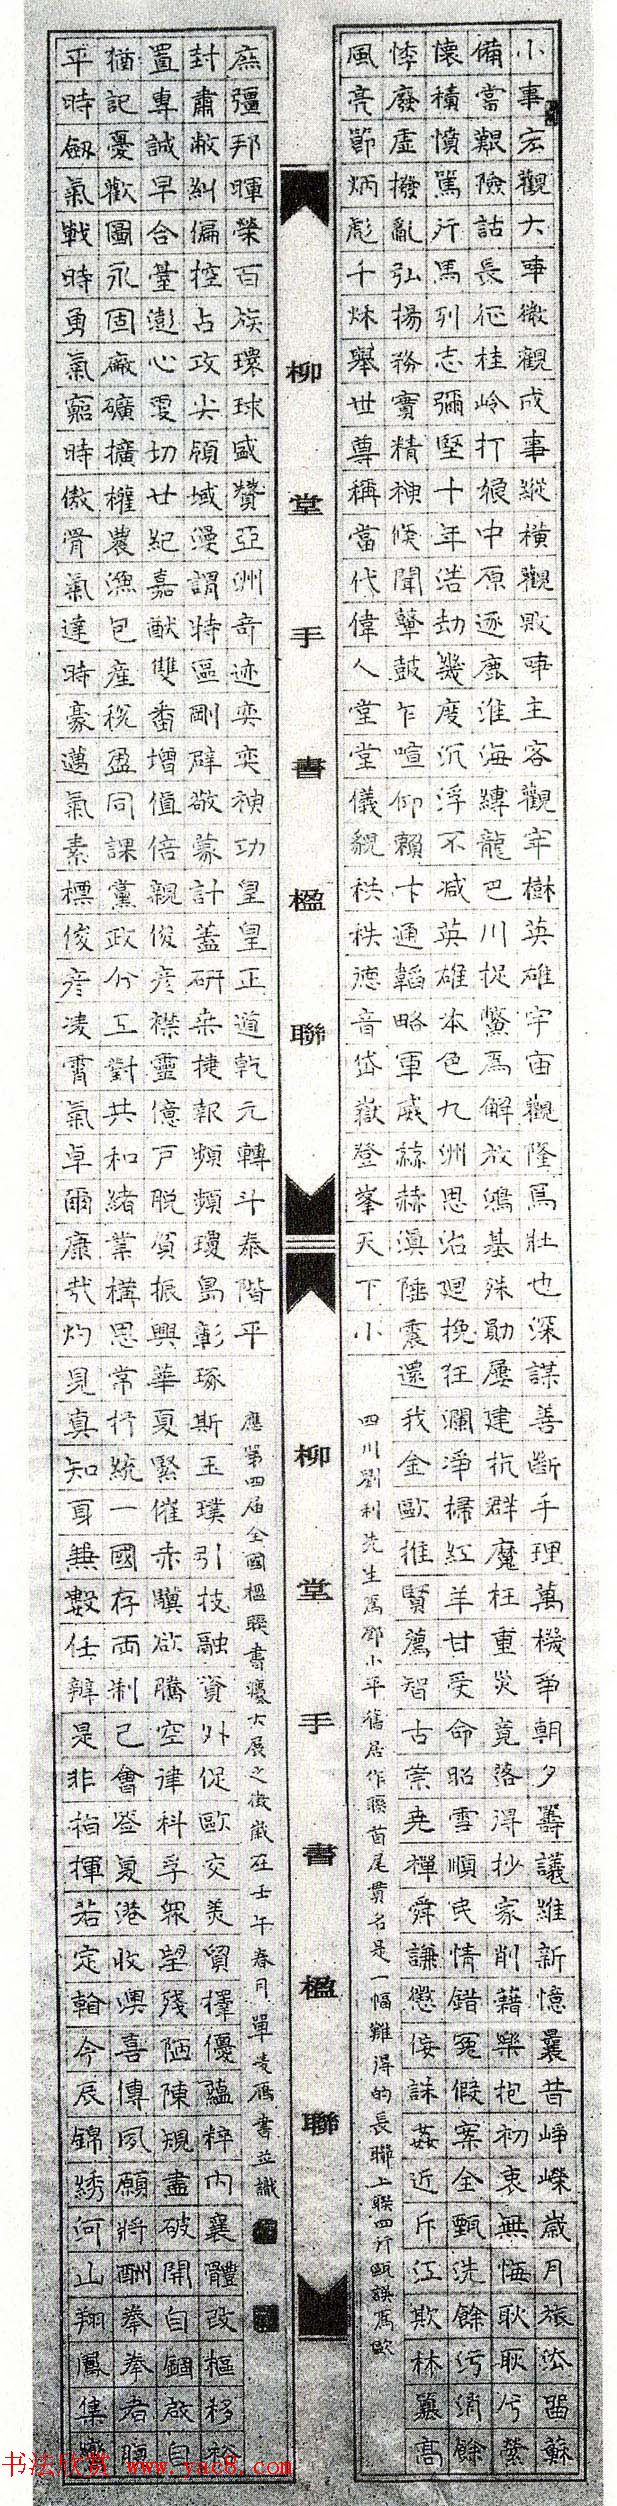 小事宏觀大事微觀成事縱橫觀敗事主客觀牢樹英雄宇宙觀隆焉壯也深謀善斷手理萬機爭朝夕籌議維新憶曩昔崢嶸歲月旅法留蘇
備嘗艱險詁長征桂岭打狼中原逐鹿淮海縛龍巴川捉鱉爲解放鴻基殊勛屢建抗群魔枉重災竟落得抄家削藉樂抱初衷無悔耿耿兮縈
懷積憤罵行馬列志彌堅十年浩劫幾度沉浮不减英雄本色九洲思治迴挽狂瀾凈掃紅羊甘受命昭雪順民情錯冤假案全甄洗餘污消餘
悸廢虛撥亂弘揚務實精神倏聞鼙鼓乍喧仰賴卞通韜略軍威赫赫滇陲震還我金歐推賢薦智古崇堯禪舜謙懲佞誅姦近斥江欺林囊高
風亮節炳彪千秋舉世尊稱當代偉人堂堂儀貌秩秩德音岱嶽登峯天下小
四川劉利先生爲鄧小平舊居作聯首尾貫名是一幅難得的長聯上聯四行甌誤爲歐
柳堂手書楹聯
柳堂手書楹聯
庶彊邦暉榮百族環球盛贊亞洲奇迹奕奕神功皇皇正道乾元轉斗泰階平
封肅敝糾偏控占攻尖領域漫謂特區剛辟敬蒙計蓋研桒捷報頻頻瓊島彰琢斯玉璞引技融資外促歐交美貿擇優蘊粹內襄體改樞移裕
置專誠早合臺澎心雯切廿紀嘉猷雙番增值倍親俊彦襟靈億戶脱貧振興華夏緊催赤驥欲騰空律科孚衆望殘陋陳規盡破開自錮啟自
猶記憂歡圖永固廠礦擴權農漁包產稅盈同課黨政分工對共和緒業構思常抒統一國存兩制已會簽夏港收澳喜傳夙願將酬拳拳者
平時劔氣戰時勇氣竆時傲骨氣達時豪邁氣素標俊彦凌霄氣卓爾康哉灼見真知耳兼數任辨是非指揮若定翰今辰錦綉河山翔鳳集
應第四届全國楹聯書藝大展之徵歲在壬午春月單志雁書並識
书法欣赏 www.yac8.com